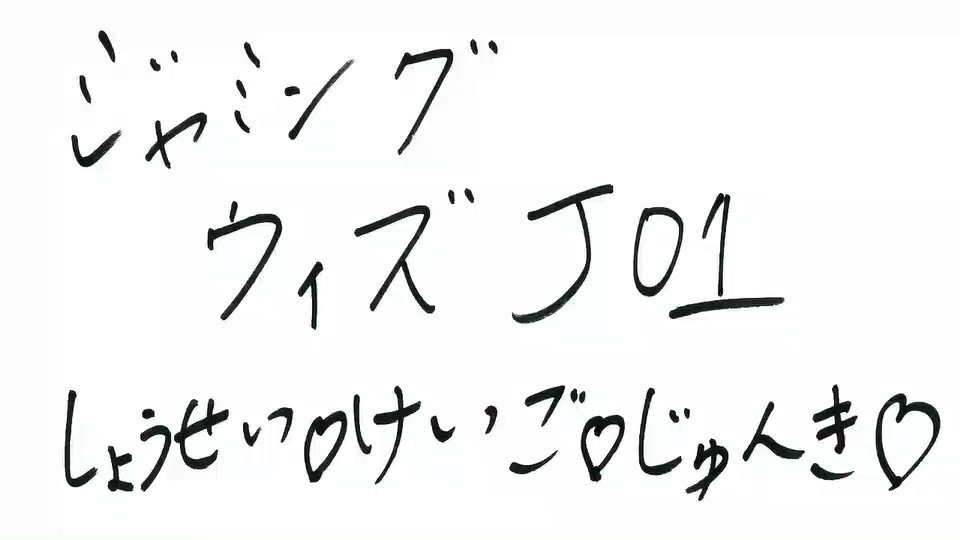 ジャミング
ウィズ J01
しょうせい♡けいご♡じゅんき♡